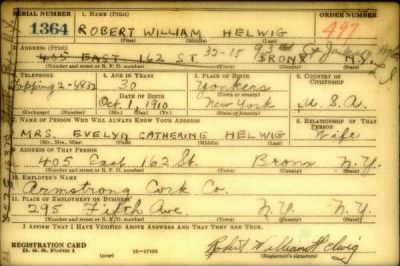 SERIAL NUMBER 1. NAME (Print) ORDER NUMBER
1364 ROBERT WILLIAM HELWIG 497
(First) (Middle) (Last)
2. ADDRESS (Print)
32-15 93
405 EAST 162 ST. BRONX N.Y.
(Number and street or R. F. D. number) (Town) (County) (State)
3. TELEPHONE 4. AGE IN YEARS 5. PLACE OF BIRTH 6. COUNTRY OF CITIZENSHIP
30 Yonkers
DATE OF BIRTH (Town or county)
Oct. 1, 1910 New York U.S.A.
(Exchange) (Number) (Mo.) (Day) (Yr.) (State or country)
7. NAME OF PERSON WHO WILL ALWAYS KNOW YOUR ADDRESS 8. RELATIONSHIP OF THAT PERSON
MRS. EVELYN CATHERINE HELWIG Wife
(Mr., Mrs., Miss) (First) (Middle) (Last)
9. ADDRESS OF THAT PERSON
405 East 162 St. Bronx N.Y.
(Number and street or R. F. D. number) (Town) (County) (State)
10. EMPLOYER'S NAME
Armstrong Cork Co.
11. PLACE OF EMPLOYMENT OR BUSINESS
295 Fifth Ave N.Y. N.Y.
(Number and street or R. F. D. number) (Town) (County) (State)
I AFFIRM THAT I HAVE VERIFIED ABOVE ANSWERS AND THAT THEY ARE TRUE.
REGISTRATION CARD Robert William Helwig
D. S. S. Form 1 (over) (Registrant's signature)